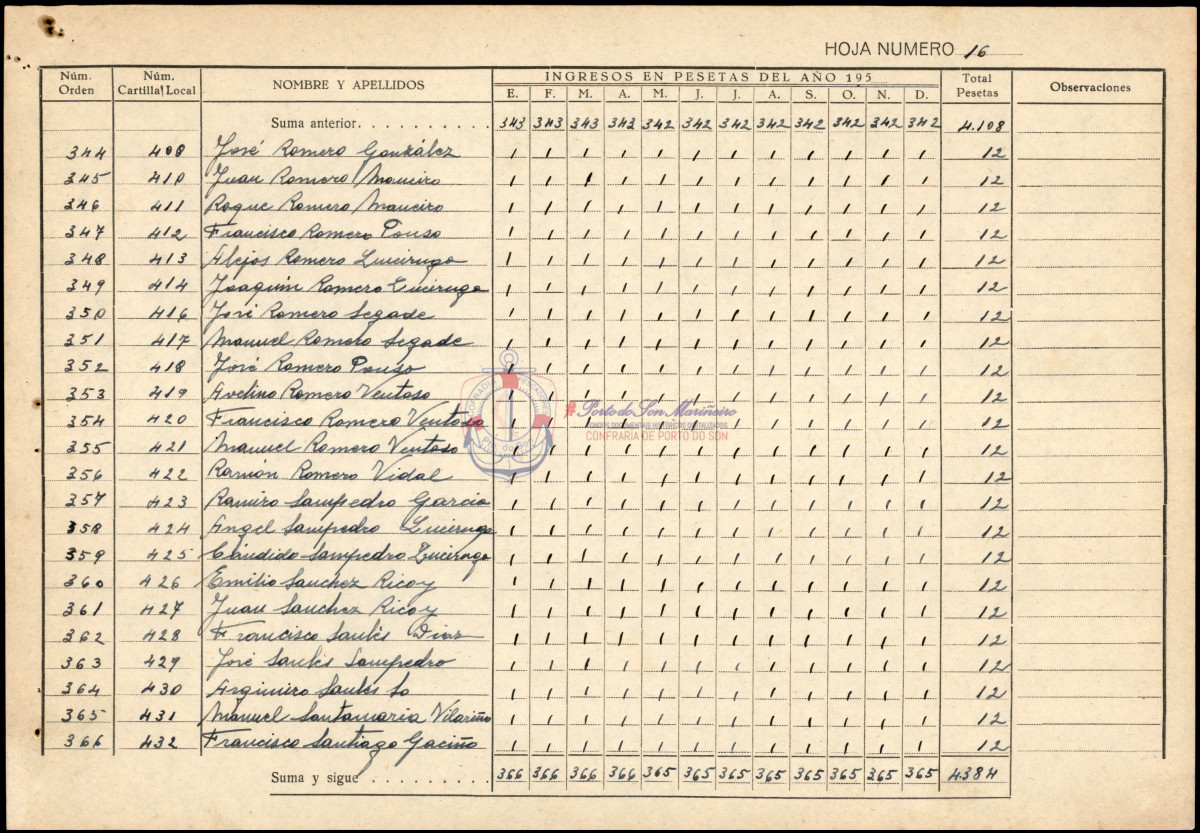 HOJA NUMERO 16
Núm. Orden Núm. Cartilla Local NOMBRE Y APELLIDOS INGRESOS EN PESETAS DEL AÑO 195 Total Pesetas Observaciones
E. F. M. A. M. J. J. A. S. O. N. D.
Suma anterior 343 343 343 343 342 342 342 342 342 342 342 342 4.108
344 408 José Romero González 1 1 1 1 1 1 1 1 1 1 1 1 12
345 410 Juan Romero Maneiro 1 1 1 1 1 1 1 1 1 1 1 1 12
346 411 Roque Romero Maneiro 1 1 1 1 1 1 1 1 1 1 1 1 12
347 412 Francisco Romero Pouso 1 1 1 1 1 1 1 1 1 1 1 1 12
348 413 Alejos Romero 1 1 1 1 1 1 1 1 1 1 1 1 12
349 414 Joaquin Romero 1 1 1 1 1 1 1 1 1 1 1 1 12
350 416 José Romero Segade 1 1 1 1 1 1 1 1 1 1 1 1 12
351 417 Manuel Romero Segade 1 1 1 1 1 1 1 1 1 1 1 1 12
352 418 José Romero Pouso 1 1 1 1 1 1 1 1 1 1 1 1 12
353 419 Avelino Romero Ventoso 1 1 1 1 1 1 1 1 1 1 1 1 12
354 420 Francisco Romero Ventoso 1 1 1 1 1 1 1 1 1 1 1 1 12
355 421 Manuel Romero Ventoso 1 1 1 1 1 1 1 1 1 1 1 1 12
356 422 Ramon Romero Vidal 1 1 1 1 1 1 1 1 1 1 1 1 12
357 423 Ramiro Sampedro Garcia 1 1 1 1 1 1 1 1 1 1 1 1 12
358 424 Angel Sampedro 1 1 1 1 1 1 1 1 1 1 1 1 12
359 425 Cándido Sampedro 1 1 1 1 1 1 1 1 1 1 1 1 12
360 426 Emilio Sanchez Ricoy 1 1 1 1 1 1 1 1 1 1 1 1 12
361 427 Juan Sanchez Ricoy 1 1 1 1 1 1 1 1 1 1 1 1 12
362 428 Francisco Saulés Diaz 1 1 1 1 1 1 1 1 1 1 1 1 12
363 429 José Saulés Sampedro 1 1 1 1 1 1 1 1 1 1 1 1 12
364 430 Argimiro Saulés So 1 1 1 1 1 1 1 1 1 1 1 1 12
365 431 Manuel Santamaria Vilariño 1 1 1 1 1 1 1 1 1 1 1 1 12
366 432 Francisco Santiago Gaciño 1 1 1 1 1 1 1 1 1 1 1 1 12
Suma y sigue 366 366 366 366 365 365 365 365 365 365 365 365 4384
#Porto do Son Mariñeiro
FONDOS DOCUMENTAIS HISTÓRICOS DIXITALIZADOS
CONFRARÍA DE PORTO DO SON